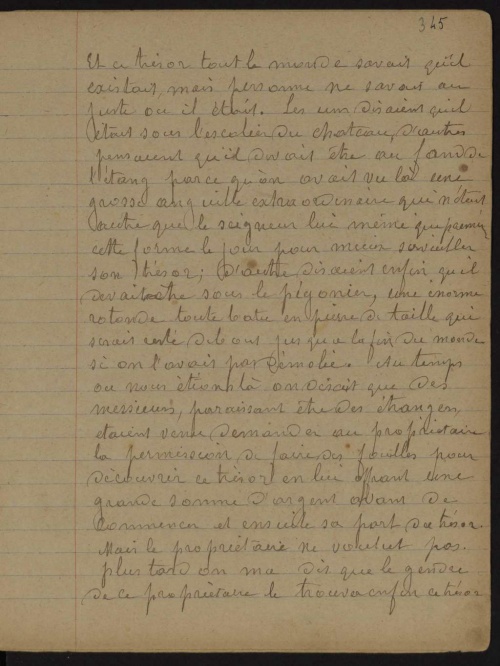 345
Et ce trésor tout le monde savait qu'il
existait, mais personne ne savais au
juste ou il étais. Les uns disaient qu'il
étais sous l'escalier du chateau, d'autres
pensaient qu'il devait être au fond de
l'étang parce qu'on avait vu là une
grosse anguille extraordinaire qui n'étais
autre que le seigneur lui même
cette forme le jour pour mieux surveiller
son trésor; d'autre disaient enfin qu'il
devait être sous le pigonier, une énorme
rotonde toute batie en pierre de taille qui
serais resté debout jusqu'a la fin du monde
si on l'avais pas démolie. Au temps
ou nous étions là on disait que des
messieurs, paraissant être des étrangers,
étaient venu demander au propriétaire
la permission de faire des fouilles pour
découvrir ce trésor en lui offrant une
grande somme d'argent avant de
commencer et ensuite sa part du trésor.
Mais le propriétaire ne voulut pas.
Plus tard on ma dis que le gendre
de ce propriétaire le trouva enfin ce trésor